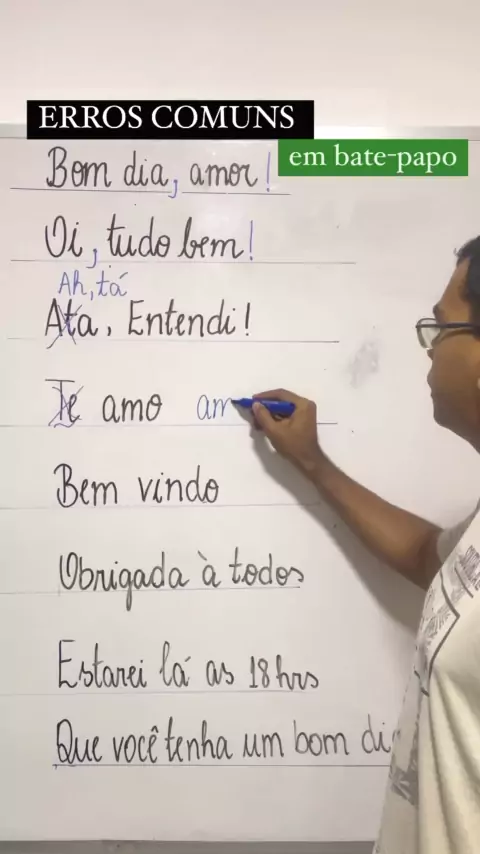 ERROS COMUNS
em bate-papo
Bom dia, amor!
Oi, tudo bem!
Ah, tá
Ata, Entendi!
Te amo am
Bem vindo
Obrigada à todos
Estarei lá as 18hrs
Que você tenha um bom di